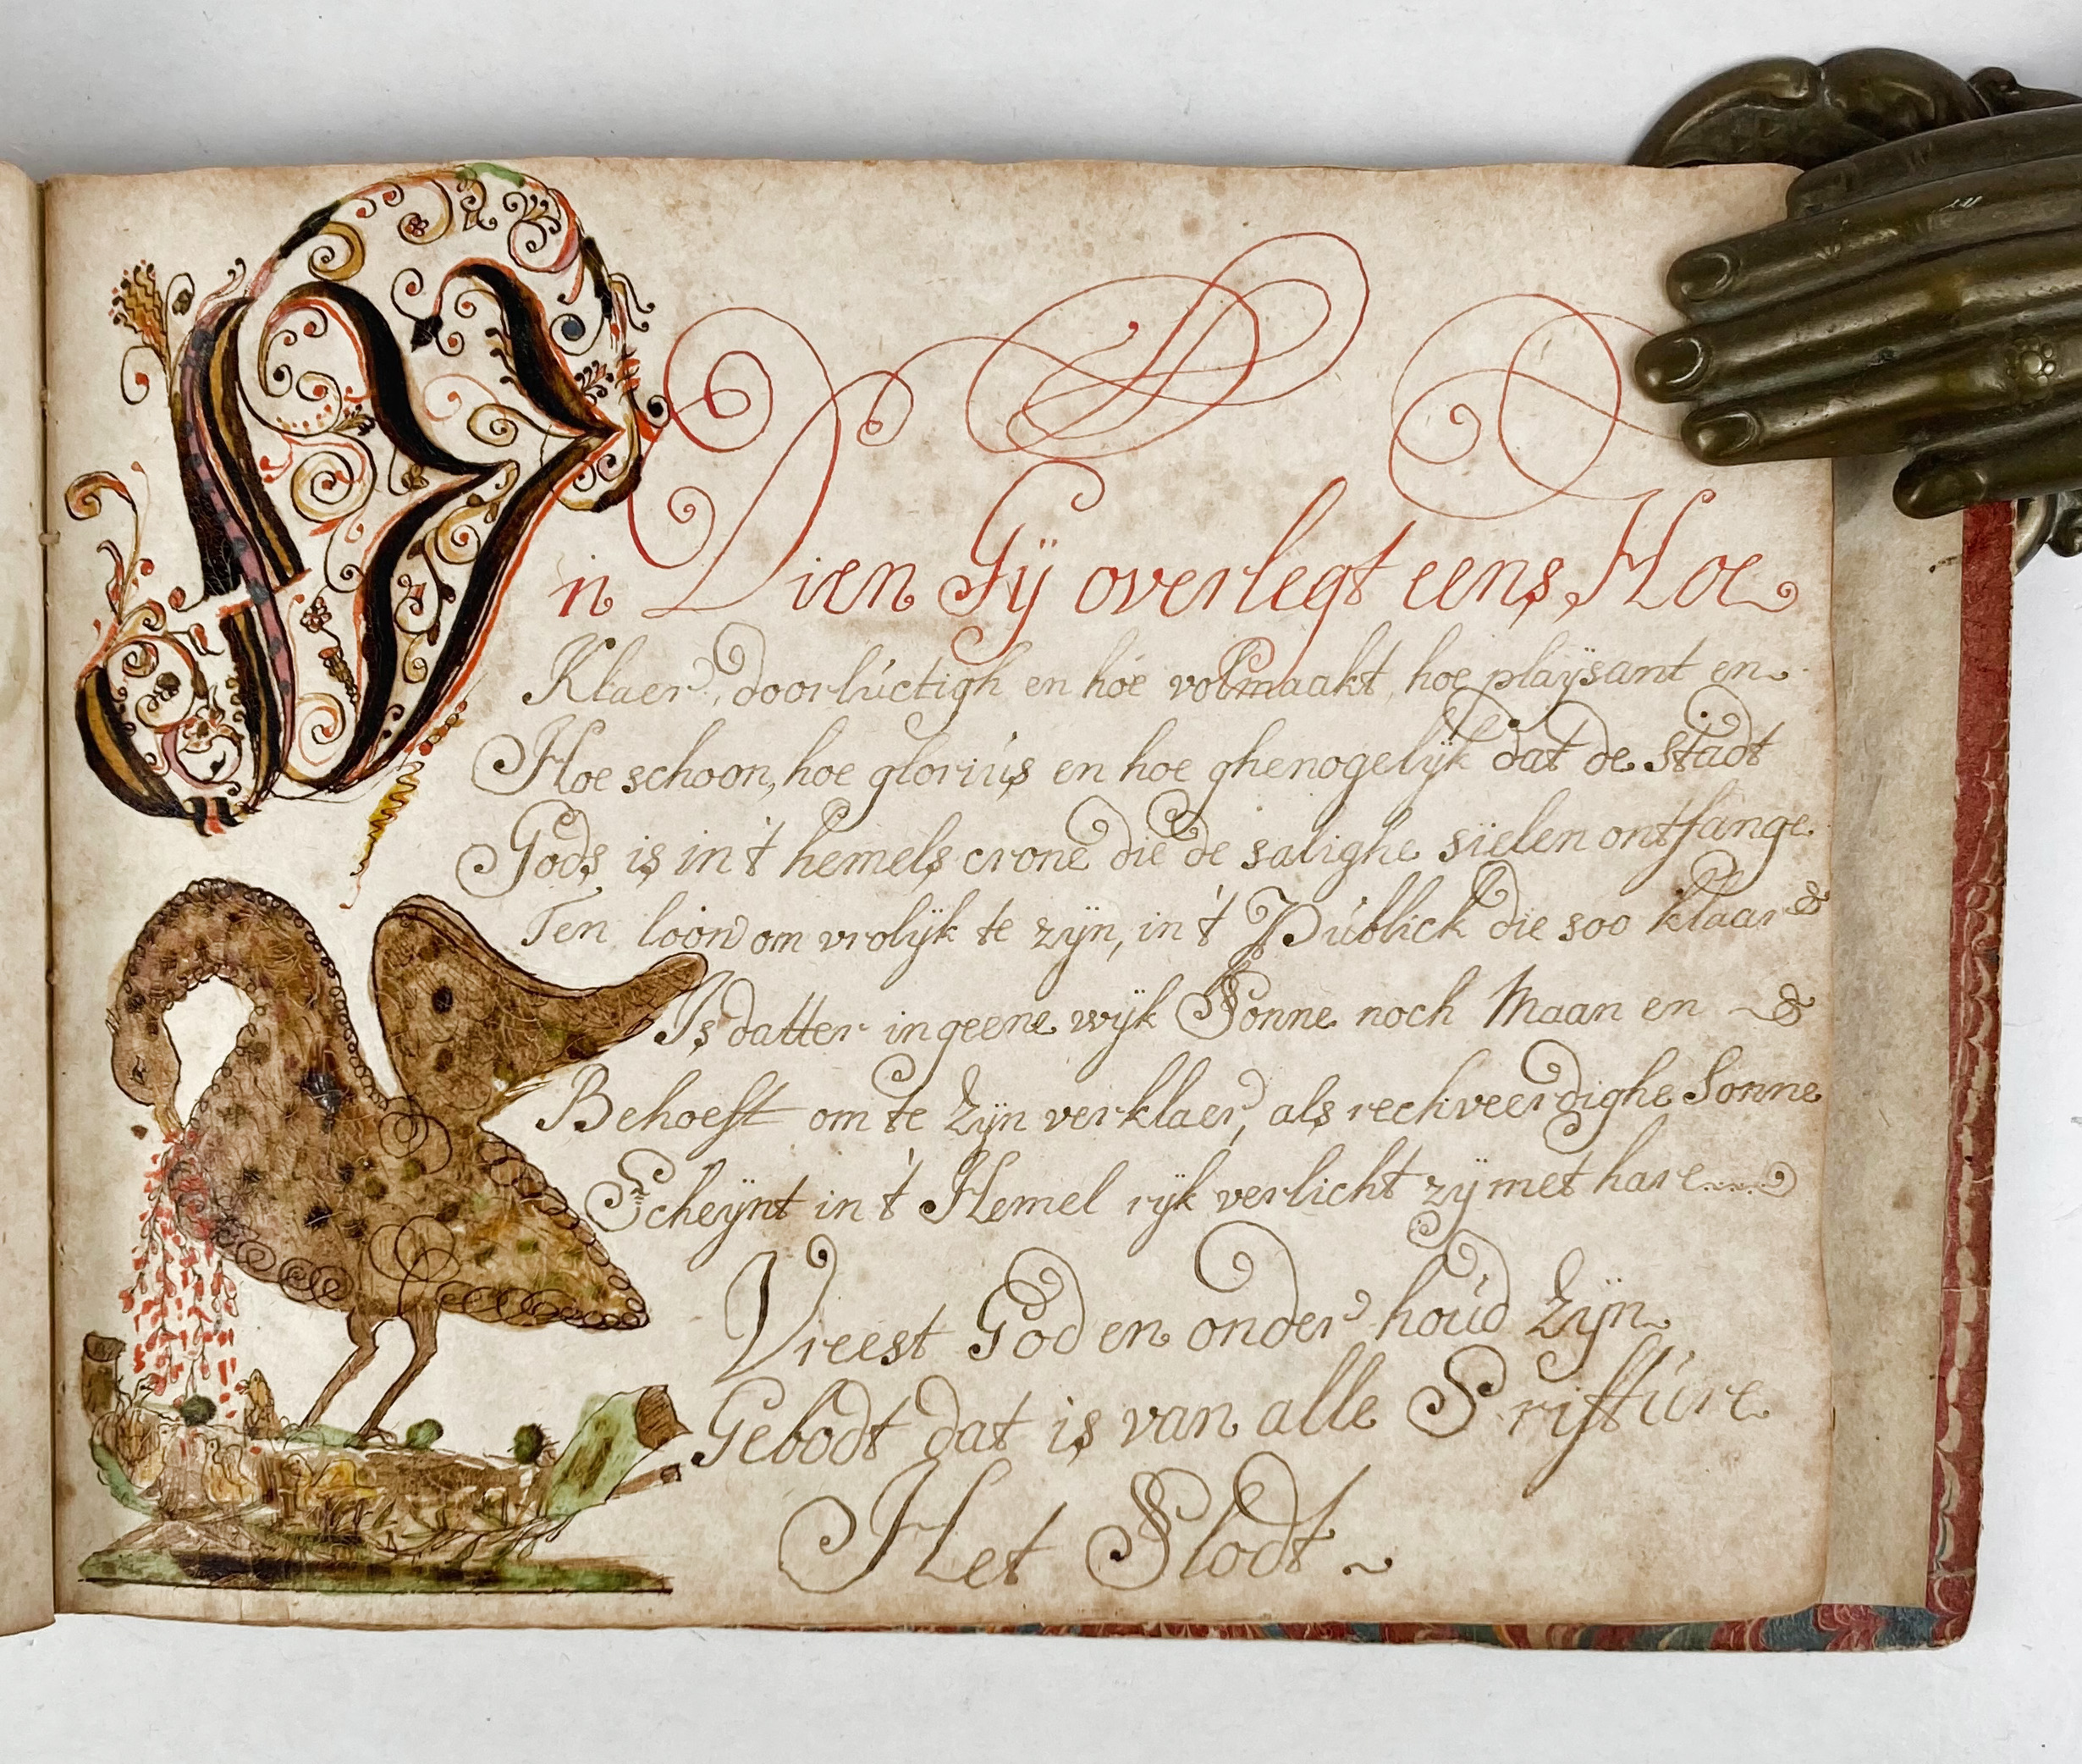 in Dien Gÿ overlegt eens, Hoe
Klaer, doorlúctigh en hóe volmaakt, hoe plaÿsant en
Hoe schoon, hoe gloriús en hoe ghenogelÿk dat de stadt
Gods is in 't hemels crone die de salighe sielen ontfange
Ten loon om vrolÿk te zÿn, in 't Públick die soo klaar &
Is datter in geene wÿk Sonne noch Maan en &
Behoeft om te Zÿn verklaer, als rechveerdighe Sonne
Scheÿnt in 't Hemel rÿk verlicht zÿ met hare
Vreest God en onder houd Zÿn
Gebodt dat is van alle Scriftúre
Het Slodt ~